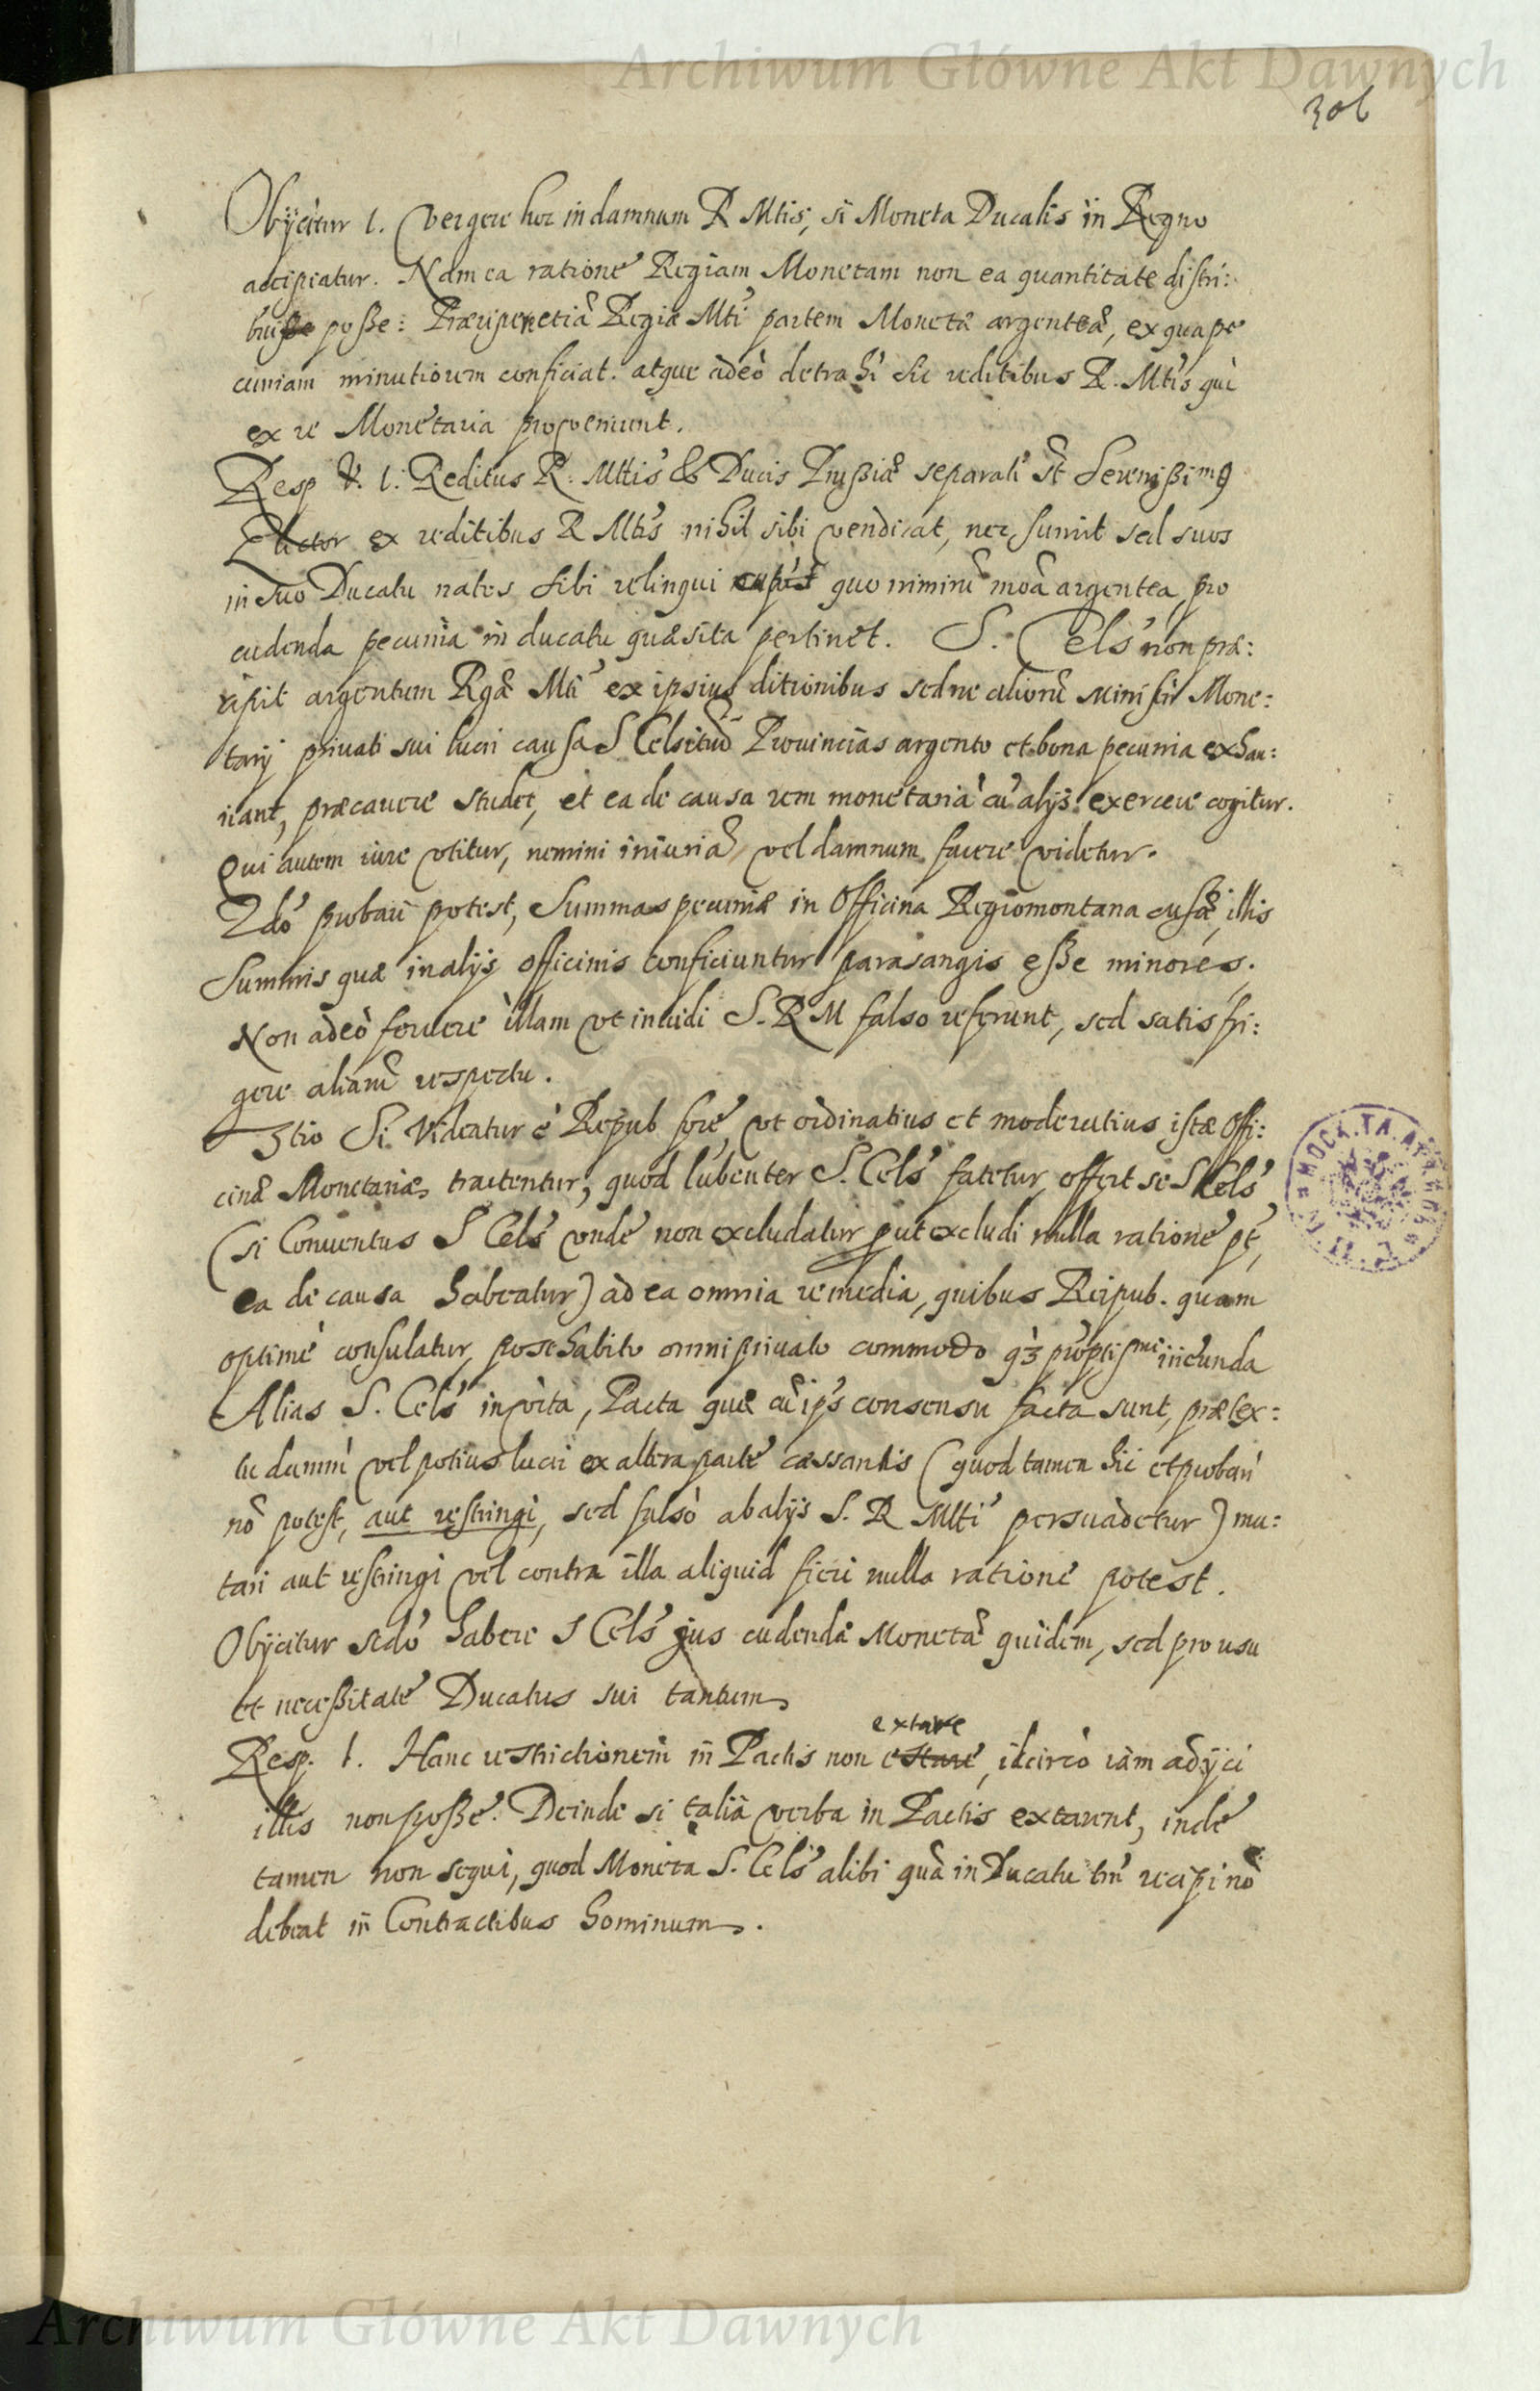 Archiwum Główne Akt Dawnych
306
Obijcitur 1. vergere hoc in damnum R Mtis, si Moneta Ducalis in Regno
accipiatur. Nam ea ratione Regiam Monetam non ea quantitate distri:
bui posse: Præripi etiã Regiæ Mti partem Monetæ argenteæ, ex qua pe
cuniam minutiorem conficiat. atque adeò detrahi sic reditibus R. Mtis qui
ex re Monetaria proveniunt.
Resp 1. Reditus R. Mttis & Ducis Prussiæ separati sũt Serenissimus
Elector ex reditibus R Mtis nihil sibi vendicat, nec sumit sed suos
in suo Ducatu natos sibi relinqui cupit quo nimirũ moã argentea, pro
cudenda pecunia in ducatu quæsita pertinet. S. Cels non præ:
ripit argentum Rgæ Mti ex ipsius ditionibus sed ne aliorũ Ministri Mone:
tarij privati sui lucri causa S Celsitud Provincias argento et bona pecunia exhau:
riant, præcavere studet, et ea de causa rem monetariã cũ alijs exercere cogitur.
Qui autem iure vtitur, nemini iniuriã vel damnum facere videtur.
2dò probari potest, Summas pecuniæ in Officina Regiomontana cusæ, illis
Summis quæ in alijs officinis conficiuntur parasangis esse minores.
Non adeò fervere illam vt invidi S. R M falso referunt, sed satis fri:
gere aliarũ respectu.
3tio Si Videatur è Repub fore, vt ordinatius et moderatius istæ Offi:
cinæ Monetariæ tractentur, quod lubenter S. Cels fatetur, offert se S Cels
(si Conventus S Cels vnde non excludatur put excludi nulla ratione pt,
ea de causa habeatur) ad ea omnia remedia, quibus Reipub. quam
optimè consulatur, posthabito omni privato commodo promptissime ineunda
Alias S. Cels invita, Pacta quæ cũ ips consensu facta sunt, prætex:
tu damni vel potius lucri ex altera parte cæssantis (quod tamen hic et probari
nõ potest, aut restringi, sed falsò ab alijs S. R Mtti persuadetur) mu:
tari aut restringi vel contra illa aliquid fieri nulla ratione potest.
Obijcitur scdò habere S Cels jus cudendæ Monetæ quidem, sed pro usu
et necessitate Ducatus sui tantum
extare
Resp. 1. Hanc restrictionem in Pactis non estare, idcircò iàm adijci
illis non posse. Deinde si talia verba in Pactis extarent, inde
tamen non sequi, quod Moneta S. Cels alibi quã in Ducatu tm recipi nõ
debeat in Contractibus hominum.
Archiwum Główne Akt Dawnych